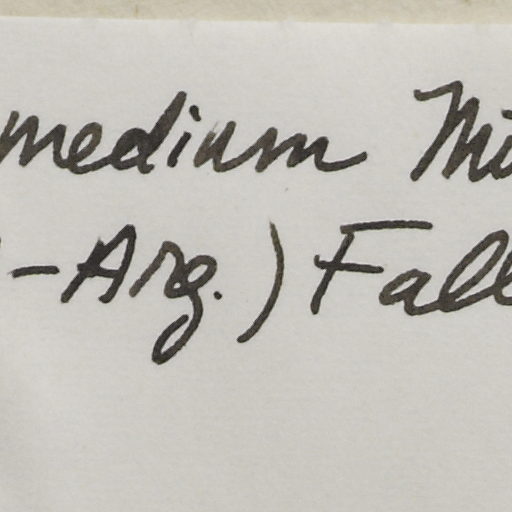 medium Mü
-Arg.) Fall